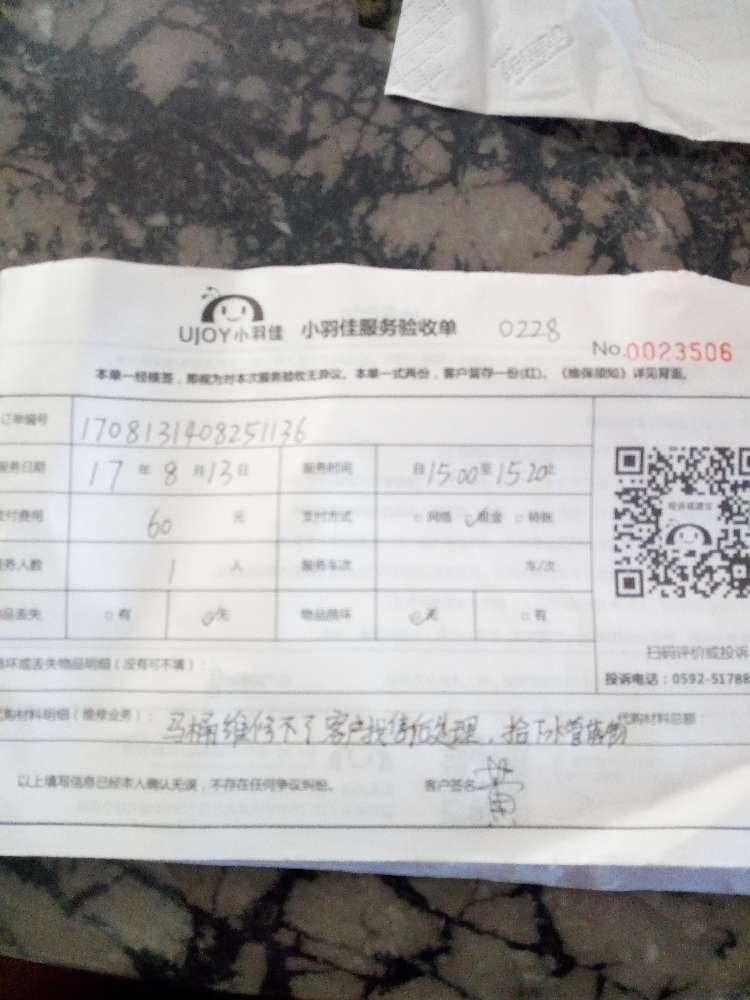 UJOY小羽佳 小羽佳服务验收单 0228
No.0023506
本单一经核签，即视为对本次服务验收无异议。本单一式两份，客户留存一份(红)。《维保须知》详见背面。
订单编号 1708131408251136
服务日期 17 年 8 月 13 日 服务时间 自 15:00 至 15:20 止
支付费用 60 元 支付方式 网络 现金 转账
服务人数 1 人 服务车次 车/次
物品丢失 有 无 物品损坏 无 有
损坏或丢失物品明细（没有可不填）：
扫码评价或投诉
投诉电话：0592-51788
代购材料明细（维修业务）： 马桶维修不了客户 处理， 下水管 代购材料总额：
以上填写信息已经本人确认无误，不存在任何争议纠纷。 客户签名 黄